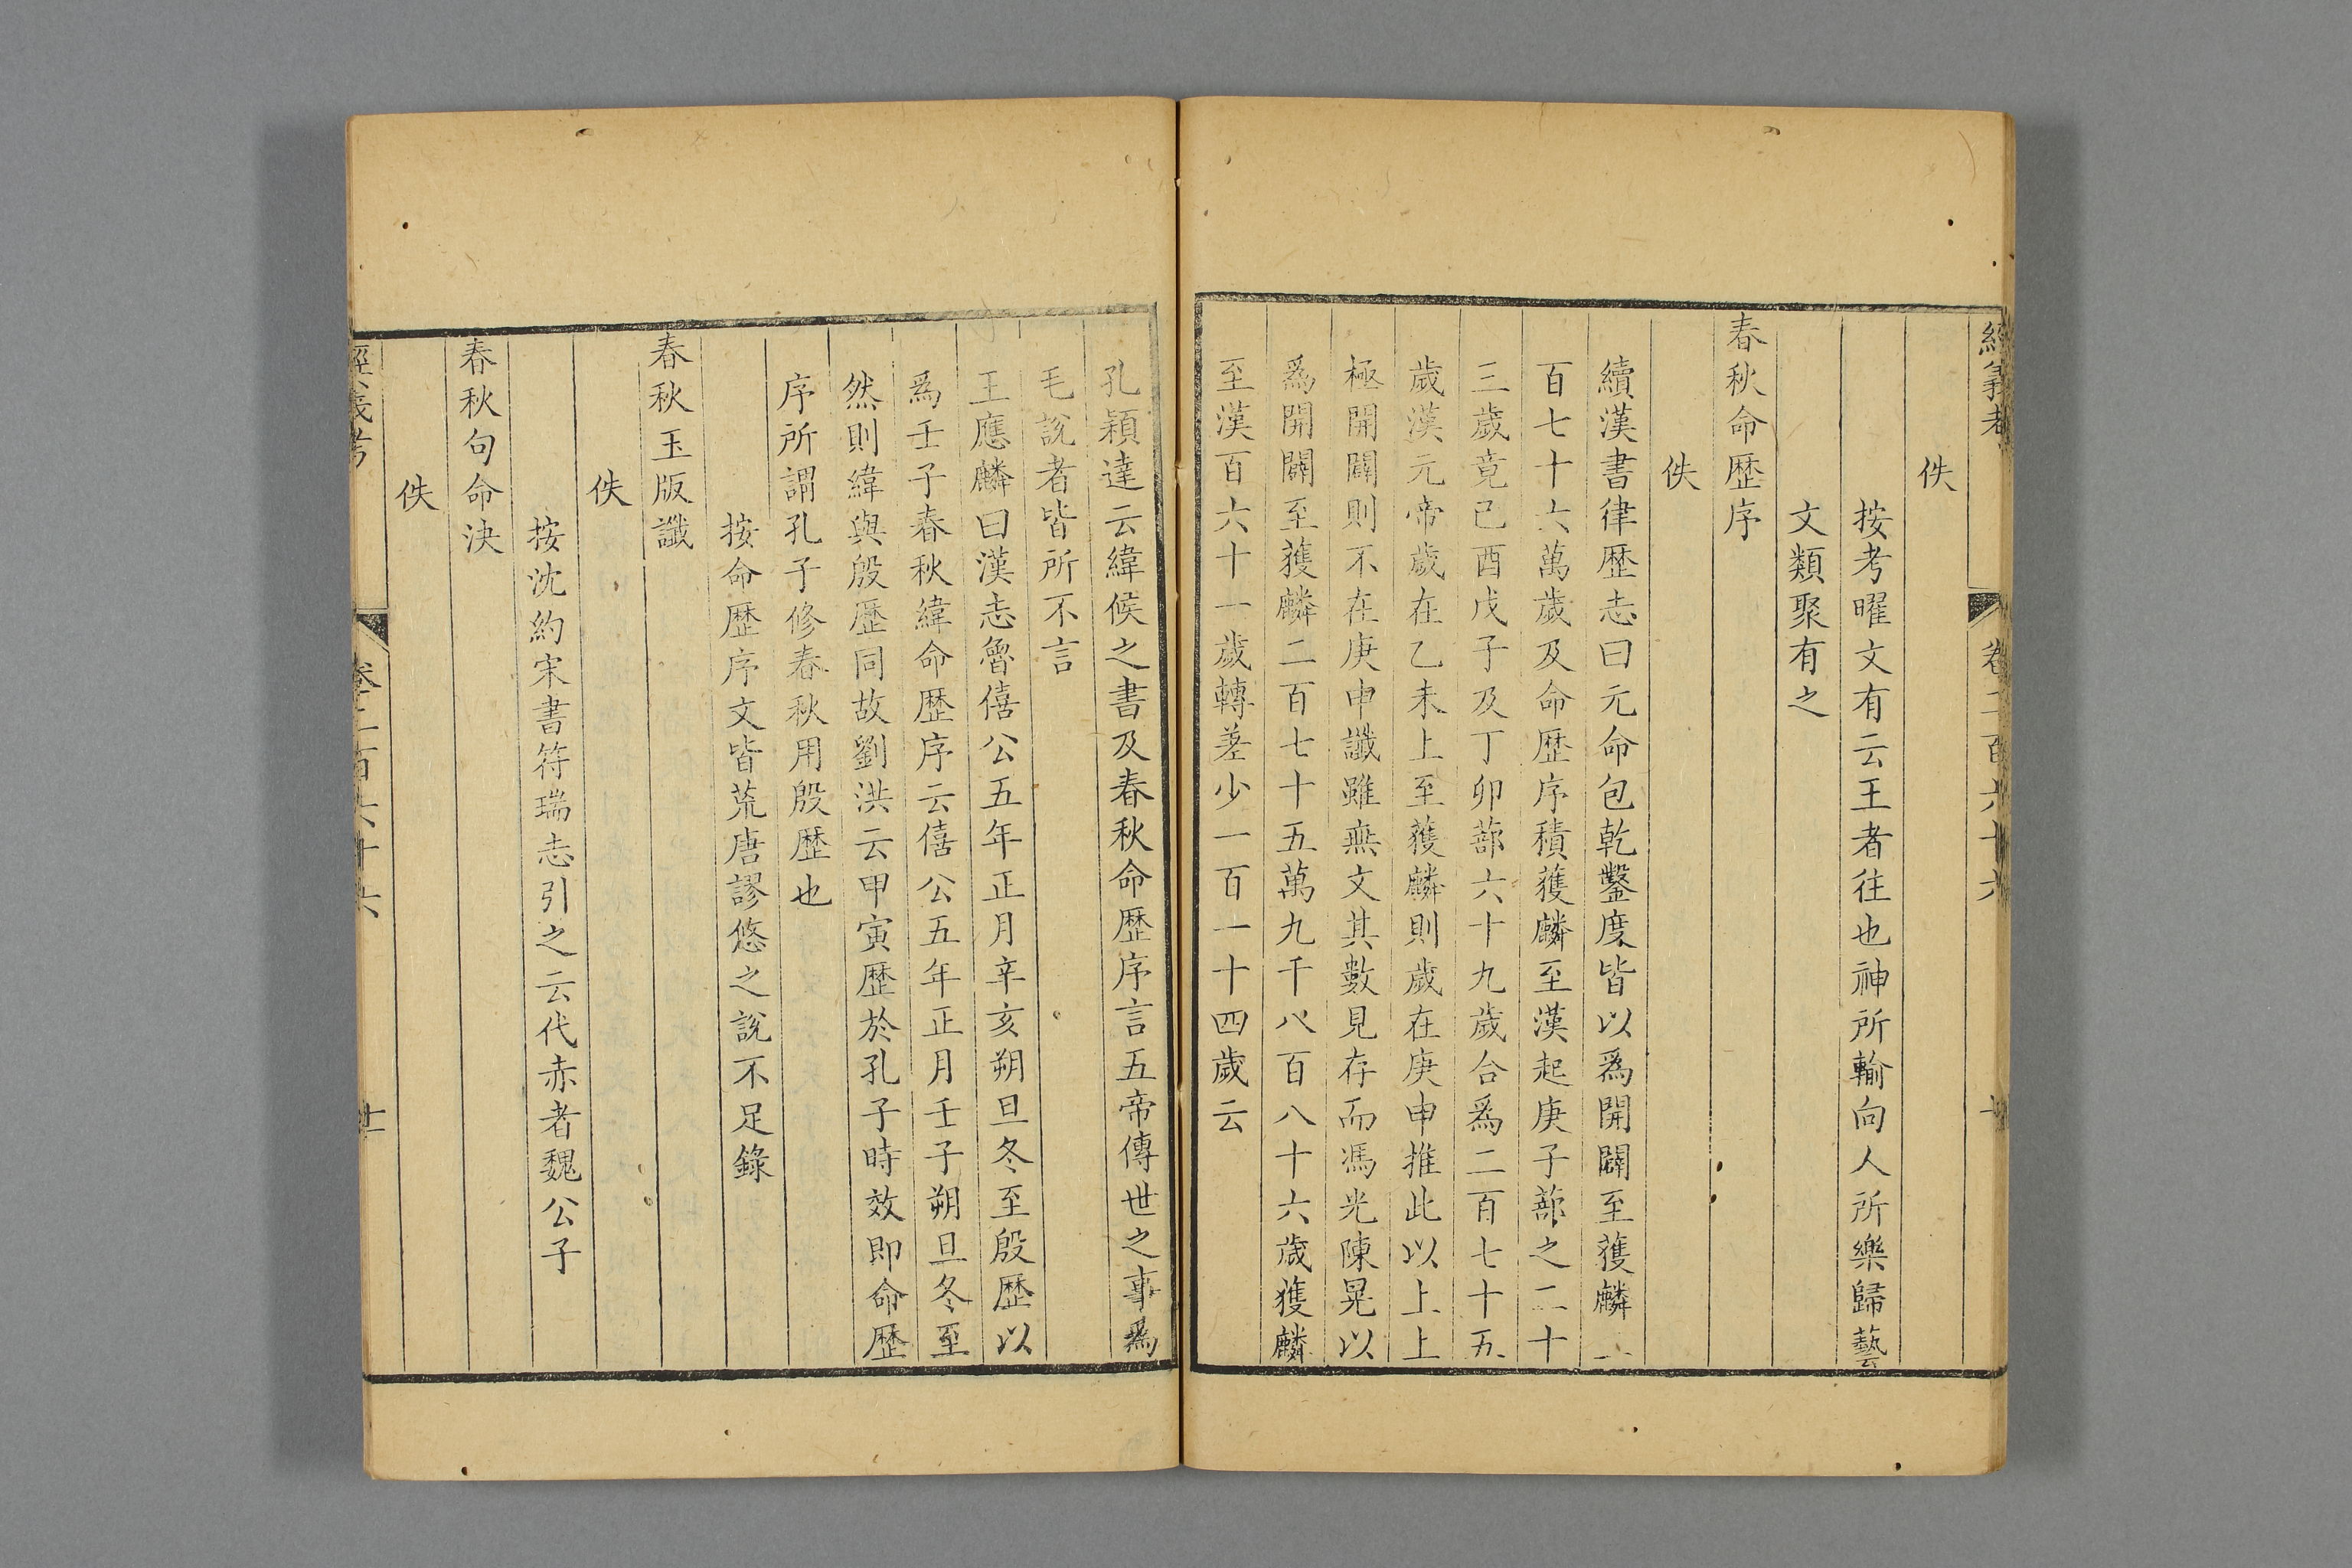 經義考 卷二百六十六
佚
按考曜文有云王者往也神所輸向人所樂歸藝
文類聚有之
春秋命歷序
佚
續漢書律歷志曰元命包乾鑿度皆以爲開闢至獲麟二
百七十六萬歲及命歷序積獲麟至漢起庚子蔀之二十
三歲竟己酉戊子及丁卯蔀六十九歲合爲二百七十五
歲漢元帝歲在乙未上至獲麟則歲在庚申推此以上上
極開闢則不在庚申讖雖無文其數見存而馮光陳晃以
爲開闢至獲麟二百七十五萬九千八百八十六歲獲麟
至漢百六十一歲轉差少一百一十四歲云
孔穎達云緯候之書及春秋命歷序言五帝傳世之事爲
毛說者皆所不言
王應麟曰漢志魯僖公五年正月辛亥朔旦冬至殷歷以
爲壬子春秋緯命歷序云僖公五年正月壬子朔旦冬至
然則緯與殷歷同故劉洪云甲寅歷於孔子時效即命歷
序所謂孔子修春秋用殷歷也
按命歷序文皆荒唐謬悠之說不足錄
春秋玉版讖
佚
按沈約宋書符瑞志引之云代赤者魏公子
春秋句命決
佚
經義考 卷二百六十六 廿